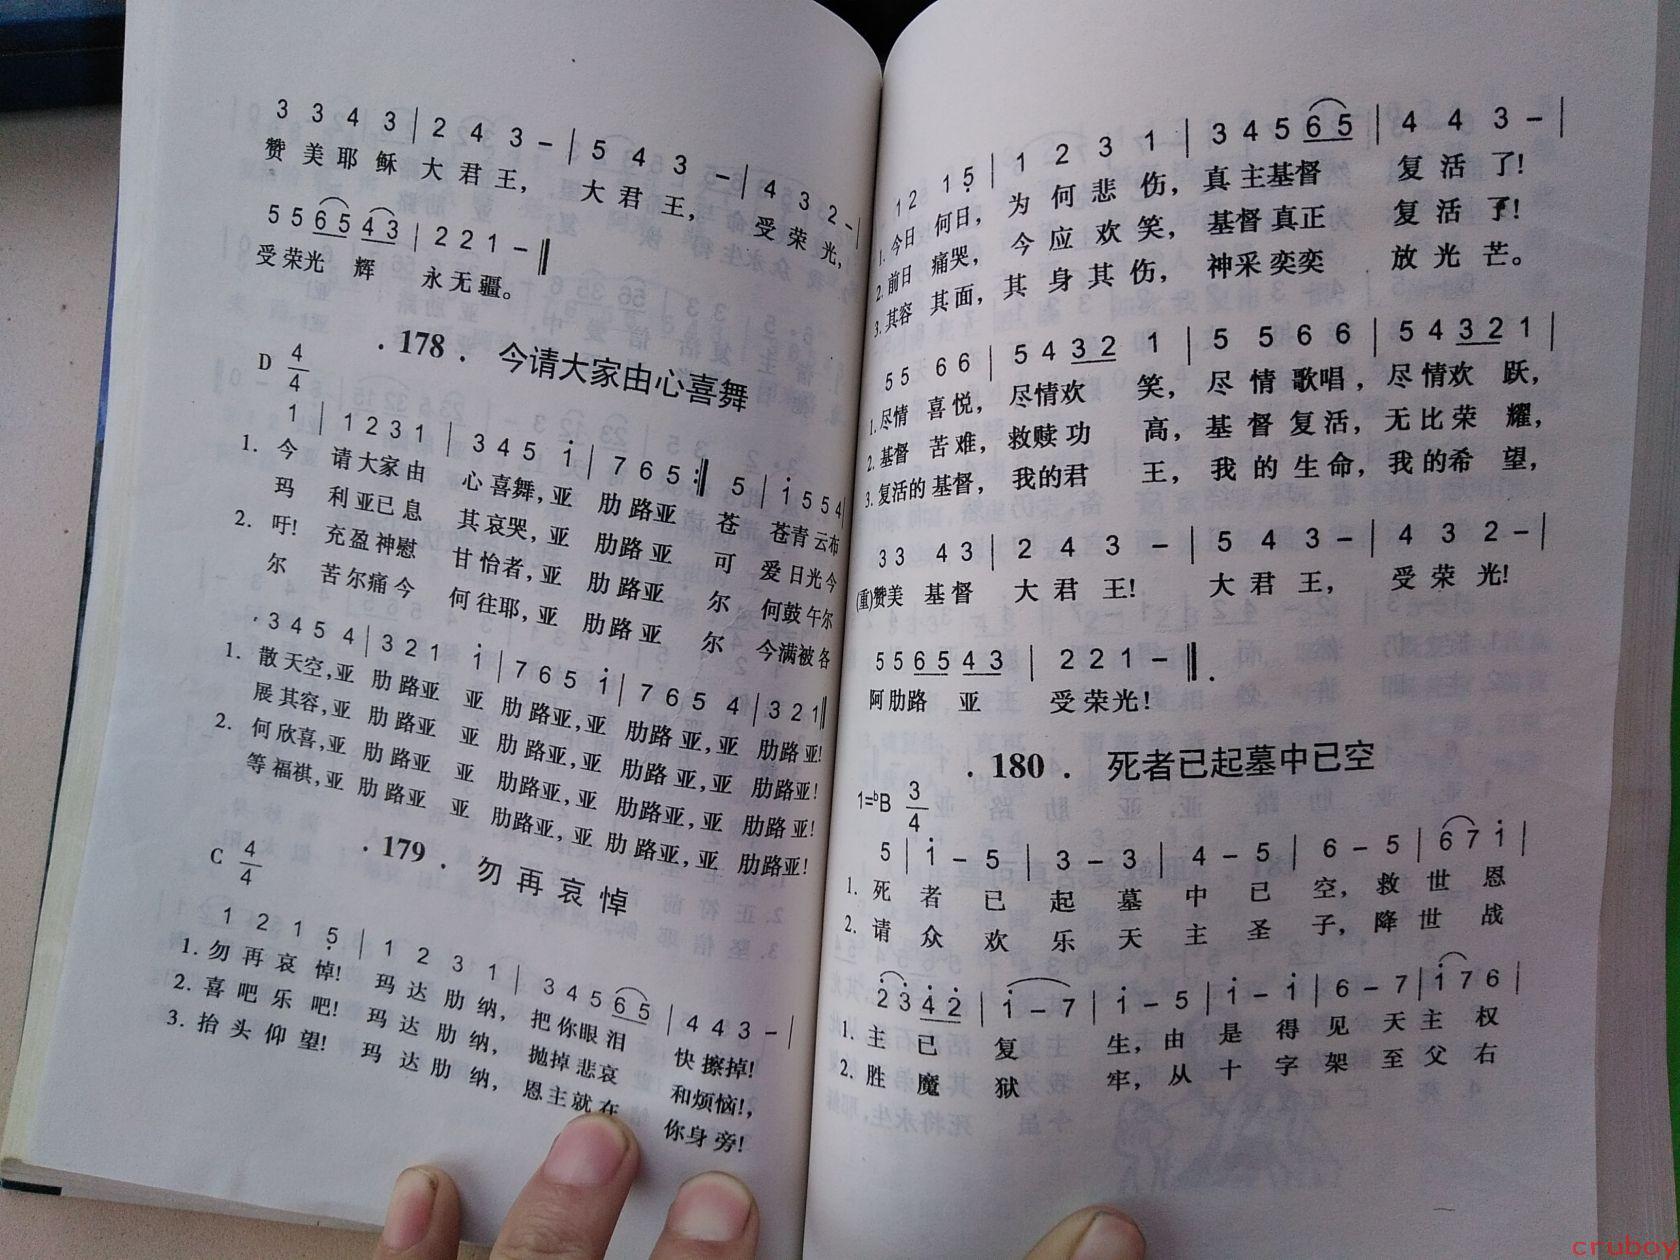 3 3 4 3 | 2 4 3 – | 5 4 3 – | 4 3 2 – |
赞 美 耶 稣 大 君 王， 大 君 王， 受 荣 光，
5 5 6 5 4 3 | 2 2 1 – ‖
受 荣光 辉 永 无 疆。
· 178 · 今请大家由心喜舞
D 4/4
1 | 1 2 3 1 | 3 4 5 i | 7 6 5 :‖ 5 | i 5 5 4 |
1. 今 请 大家 由 心 喜 舞，亚 肋 路亚 苍 苍青 云布
玛 利 亚已 息 其 哀 哭，亚 肋路 亚 可 爱 日光 今
2. 吁! 充 盈神 慰 甘 怡者，亚 肋路 亚 尔 何鼓 午尔
尔 苦 尔痛 今 何 往耶，亚 肋 路 亚 尔 今满被 各
3 4 5 4 | 3 2 1 i | 7 6 5 i | 7 6 5 4 | 3 2 1 ‖
1. 散 天空，亚 肋 路亚 亚 肋 路亚，亚 肋路 亚，亚 肋路 亚!
展 其容，亚 肋 路亚 亚 肋 路亚，亚 肋路 亚，亚 肋路亚!
2. 何 欣喜，亚 肋路 亚 亚 肋路亚，亚 肋路 亚，亚 肋路 亚!
等 福祺，亚 肋路亚 亚 肋路亚，亚 肋路 亚，亚 肋路亚!
· 179 · 勿 再 哀 悼
C 4/4
1 2 1 5̣ | 1 2 3 1 | 3 4 5 6 5 | 4 4 3 – |
1. 勿 再 哀 悼! 玛 达 肋 纳， 把 你眼 泪 快 擦掉!
2. 喜 吧 乐 吧! 玛 达 肋 纳， 抛掉 悲哀 和烦恼!，
3. 抬 头 仰 望! 玛 达 肋 纳， 恩 主就 在 你身 旁!
1 2 1 5̣ | 1 2 3 1 | 3 4 5 6 5 | 4 4 3 – |
1. 今日 何日， 为 何 悲 伤， 真 主基督 复 活 了!
2. 前日 痛哭， 今 应 欢 笑， 基督 真正 复 活 了!
3. 其容 其面， 其 身 其 伤， 神采 奕奕 放 光 芒。
5 5 6 6 | 5 4 3 2 1 | 5 5 6 6 | 5 4 3 2 1 |
1. 尽情 喜 悦， 尽情欢 笑， 尽 情 歌唱， 尽 情欢 跃，
2. 基督 苦 难， 救赎 功 高， 基 督 复 活， 无 比 荣 耀，
3. 复活的 基督， 我的君 王， 我 的 生 命， 我 的希 望，
3 3 4 3 | 2 4 3 – | 5 4 3 – | 4 3 2 – |
(重)赞美 基 督 大 君 王! 大 君 王， 受 荣 光!
5 5 6 5 4 3 | 2 2 1 – ‖ .
阿 肋路 亚 受 荣光!
· 180 · 死者已起墓中已空
1=ᵇB 3/4
5 | i – 5 | 3 – 3 | 4 – 5 | 6 – 5 | 6 7 i |
1. 死 者 已 起 墓 中 已 空， 救 世 恩
2. 请 众 欢 乐 天 主 圣 子， 降 世 战
2̇ 3̇ 4̇ 2̇ | i – 7 | i – 5 | i – i | 6 – 7 | i 7 6 |
1. 主 已 复 生， 由 是 得 见 天 主 权
2. 胜 魔 狱 牢， 从 十 字 架 至 父 右
cruboy